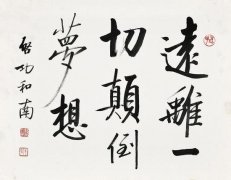 遠離一
切顛倒
夢想
啟功和南